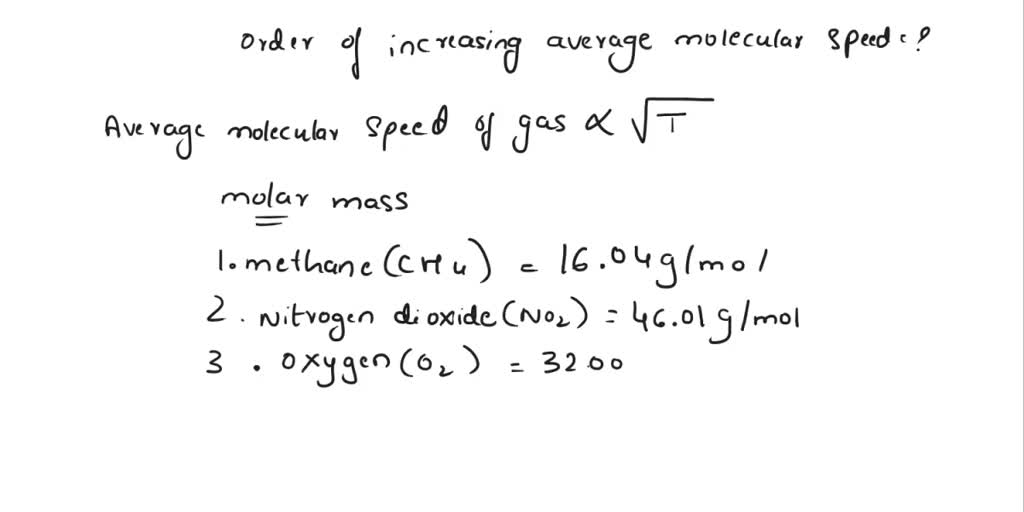 Order of increasing average molecular speed = ?
Average molecular speed of gas ∝ √T
molar mass
1. methane (CH4) = 16.04 g/mol
2. Nitrogen dioxide (NO2) = 46.01 g/mol
3. Oxygen (O2) = 3200